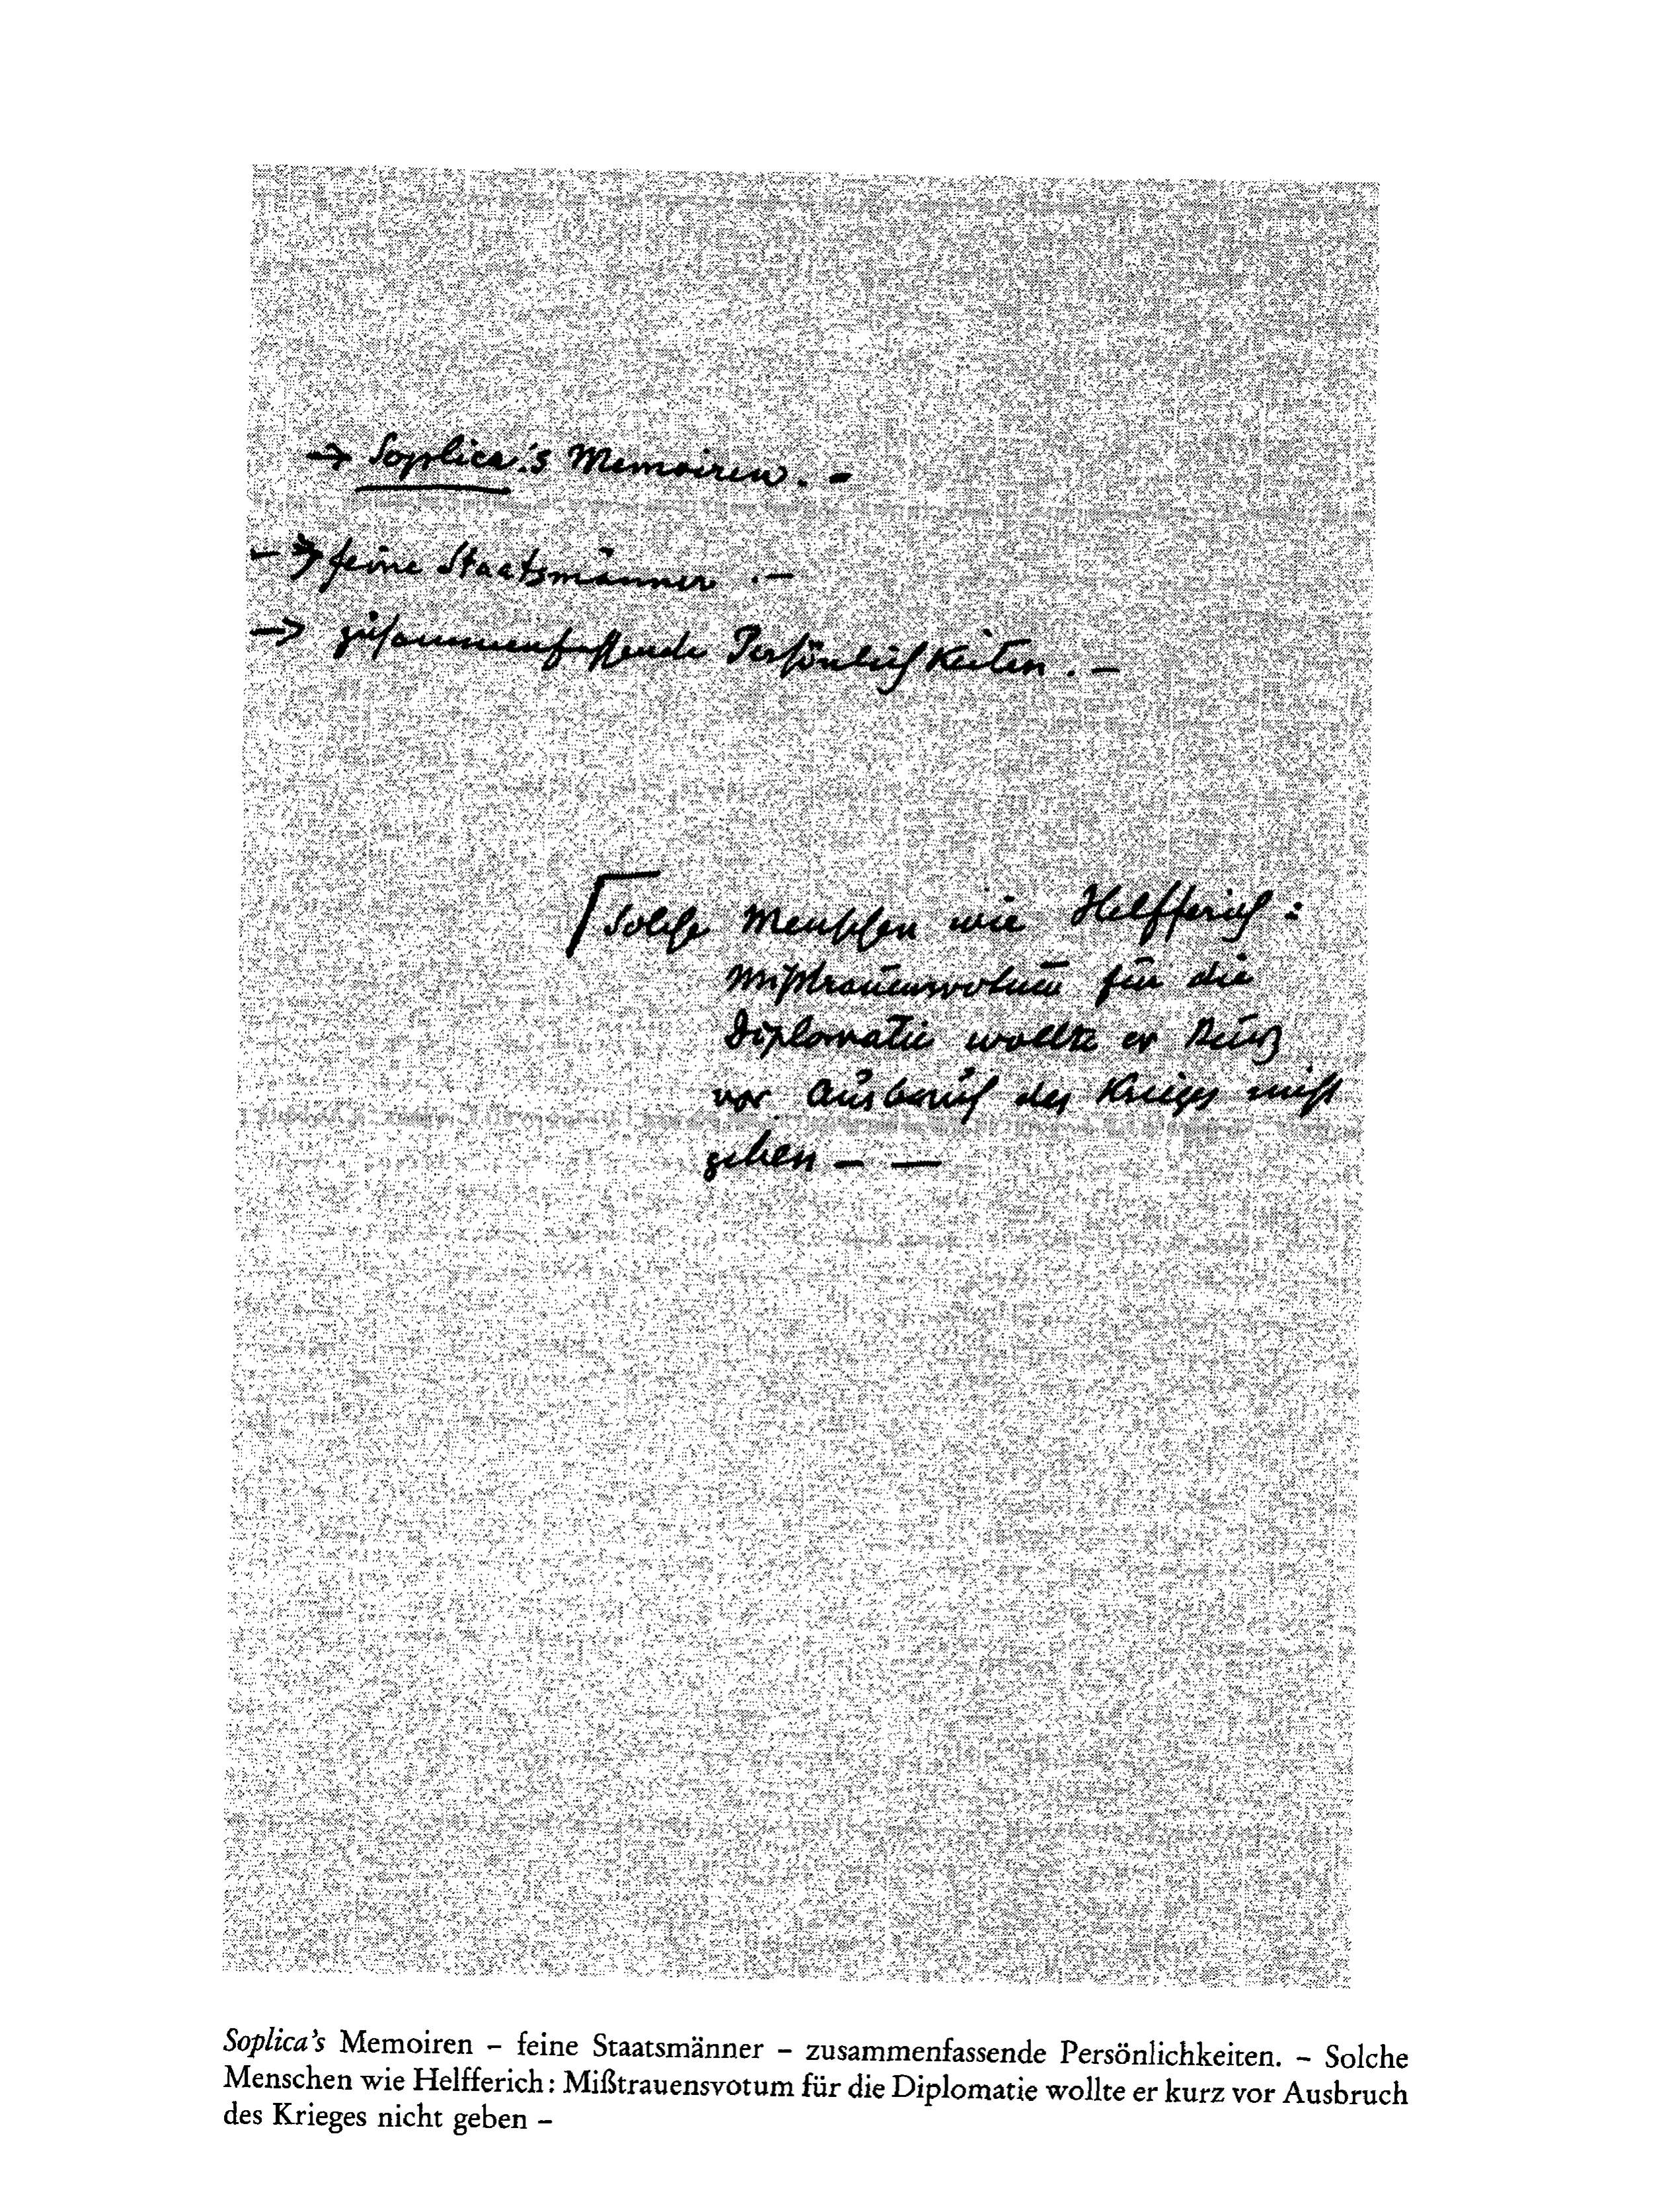 → Soplica's Memoiren. –
→ feine Staatsmänner. –
→ zusammenfassende Persönlichkeiten. –
Solche Menschen wie Helfferich:
Mißtrauensvotum für die
Diplomatie wollte er kurz
vor Ausbruch des Krieges nicht
geben – –
Soplica's Memoiren – feine Staatsmänner – zusammenfassende Persönlichkeiten. – Solche
Menschen wie Helfferich: Mißtrauensvotum für die Diplomatie wollte er kurz vor Ausbruch
des Krieges nicht geben –